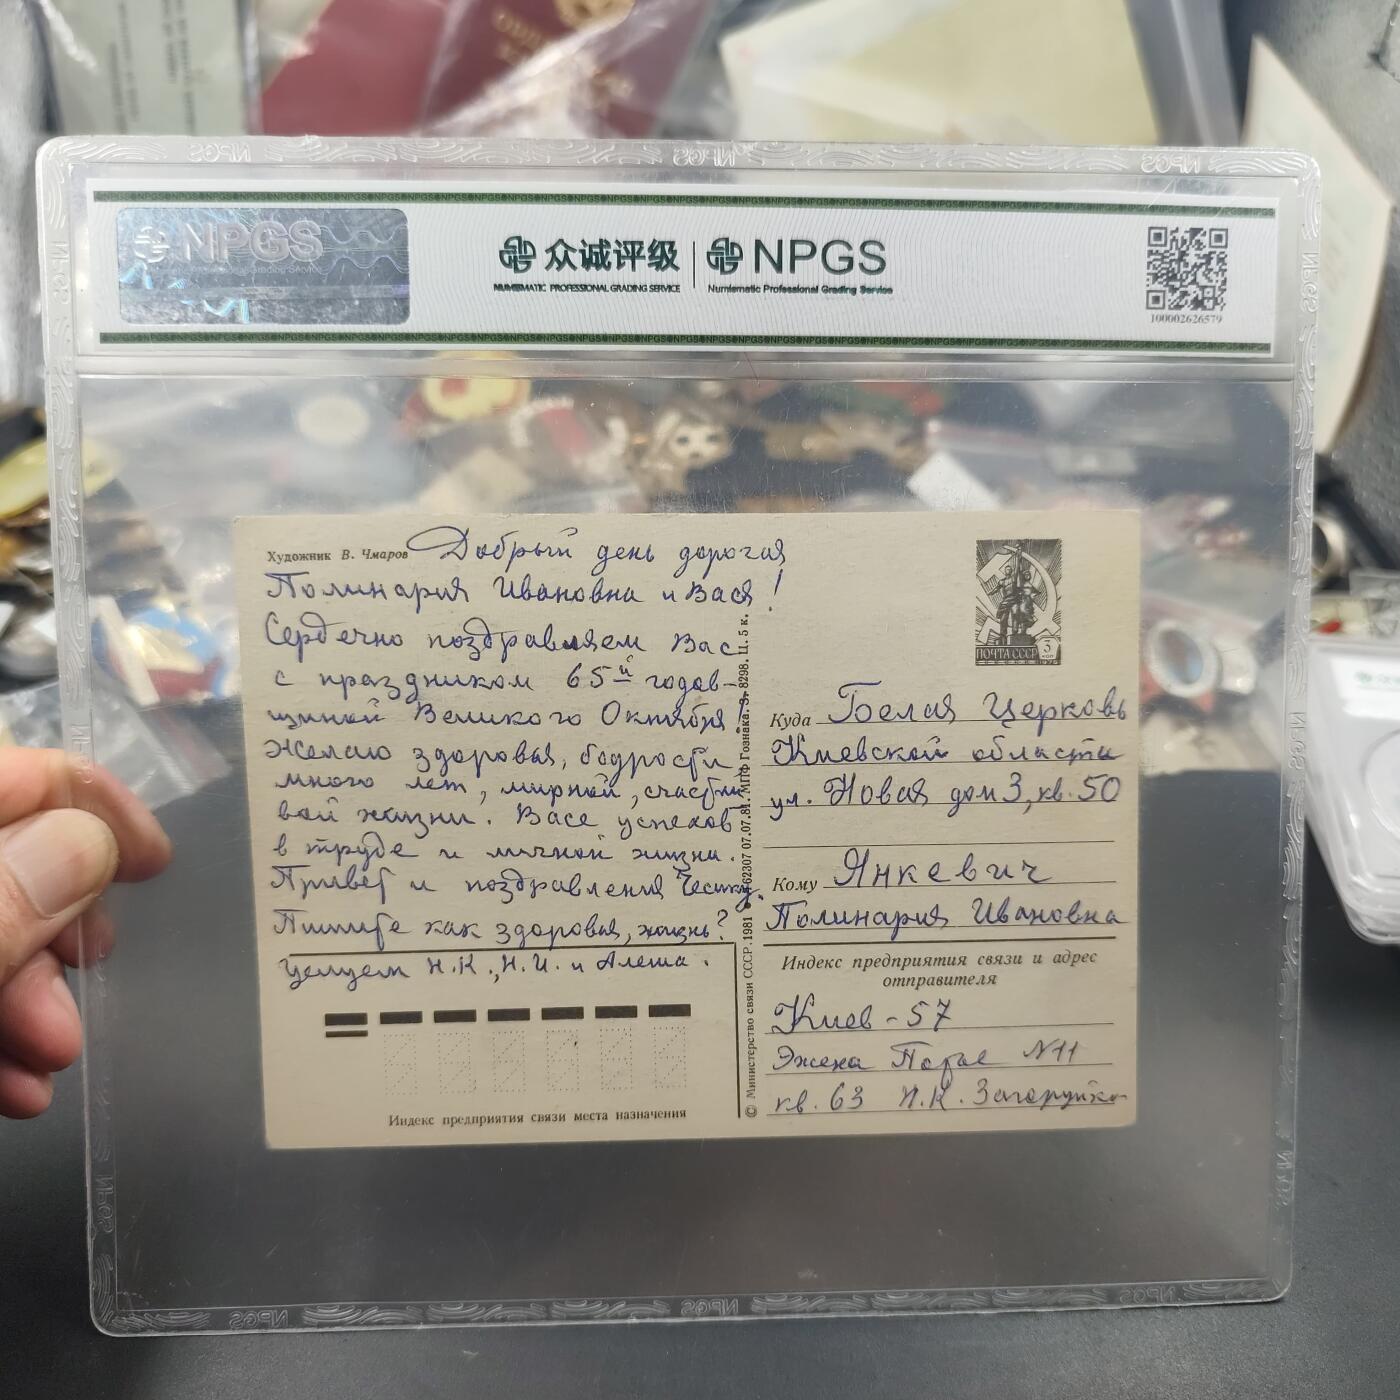 NPGS
众诚评级
NUMISMATIC PROFESSIONAL GRADING SERVICE
NPGS
Numismatic Professional Grading Service
100002626579
Художник В. Чмаров
Добрый день дорогая
Полинария Ивановна и Вася!
Сердечно поздравляем Вас
с праздником 65й годов-
щиной Великого Октября!
Желаю здоровья, бодрости
много лет, мирной, счастли
вой жизни. Васе успехов
в труде и личной жизни.
Привет и поздравления
Пишите как здоровья, жизнь?
Целуем Н.К., Н.И. и Алеша.
Индекс предприятия связи места назначения
© Министерство связи СССР. 1981 62307 07.07.81. МПФ Гознака. З. 8298. Ц. 5 к.
ПОЧТА СССР
3
КОП
Куда Белая Церковь
Киевской области
ул. Новая дом 3, кв. 50
Кому Янкевич
Полинария Ивановна
Индекс предприятия связи и адрес
отправителя
Киев - 57
Эжена Потье N11
кв. 63 Н.К. Загоруйко